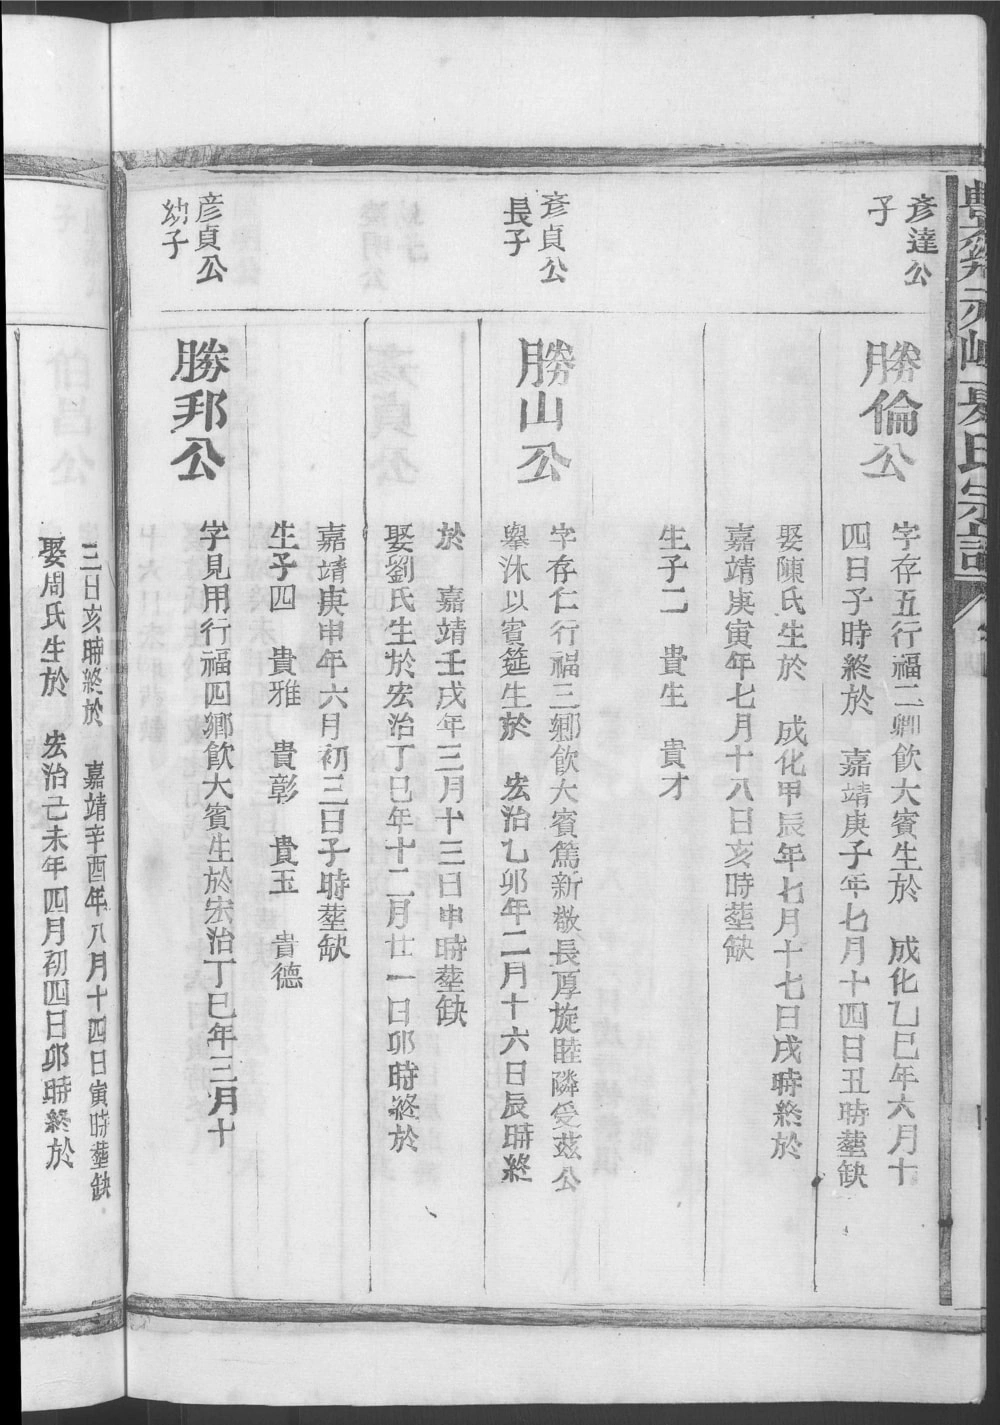 彥達公
子
勝倫公
字存五行福二鄉飲大賓生於　成化乙巳年六月十
四日子時終於　嘉靖庚子年七月十四日丑時塟缺
娶陳氏生於　成化甲辰年七月十七日戌時終於
嘉靖庚寅年七月十八日亥時塟缺
生子二　貴生　貴才
彥貞公
長子
勝山公
字存仁行福三鄉飲大賓篤新敬長厚旋睦隣受茲公
舉沐以賓筵生於　宏治乙卯年二月十六日辰時終
於　嘉靖壬戌年三月十三日申時塟缺
娶劉氏生於宏治丁巳年十二月廿一日卯時終於
嘉靖庚申年六月初三日子時塟缺
生子四　貴雅　貴彰　貴玉　貴德
彥貞公
幼子
勝邦公
字見用行福四鄉飲大賓生於宏治丁巳年三月十
三日亥時終於　嘉靖辛酉年八月十四日寅時塟缺
娶周氏生於　宏治己未年四月初四日卯時終於